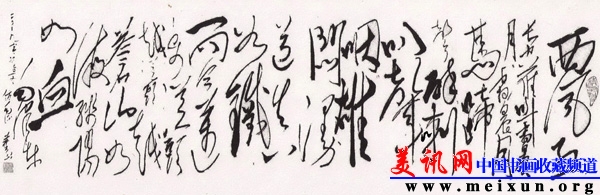 西风烈
长空雁叫霜晨
月霜晨月
马蹄
声碎喇
叭声
咽雄
关漫
道真
如铁
而今迈
步从头
越从头越
苍山如
海残阳
如血
美讯网中国书画收藏频道
www.meixun.org